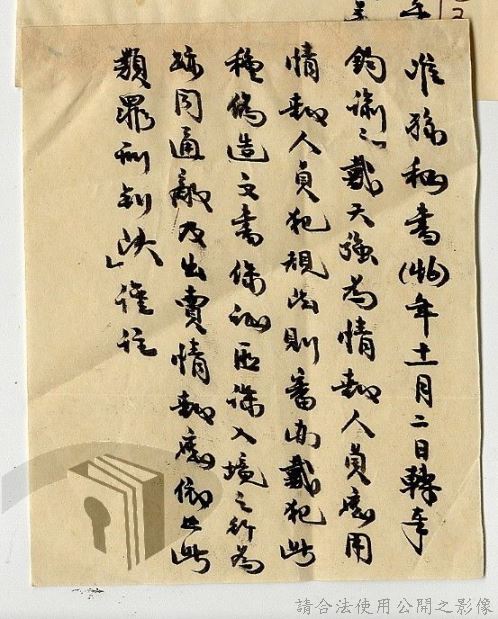 准孫秘書(46)年十一月二日轉奉
鈞諭「戴天強為情報人員應用
情報人員犯規法則審由戴犯此
種偽造文書保證匪諜入境之行為
跡同通敵及出賣情報應依此
類罪刑判決」謹註
請合法使用公開之影像